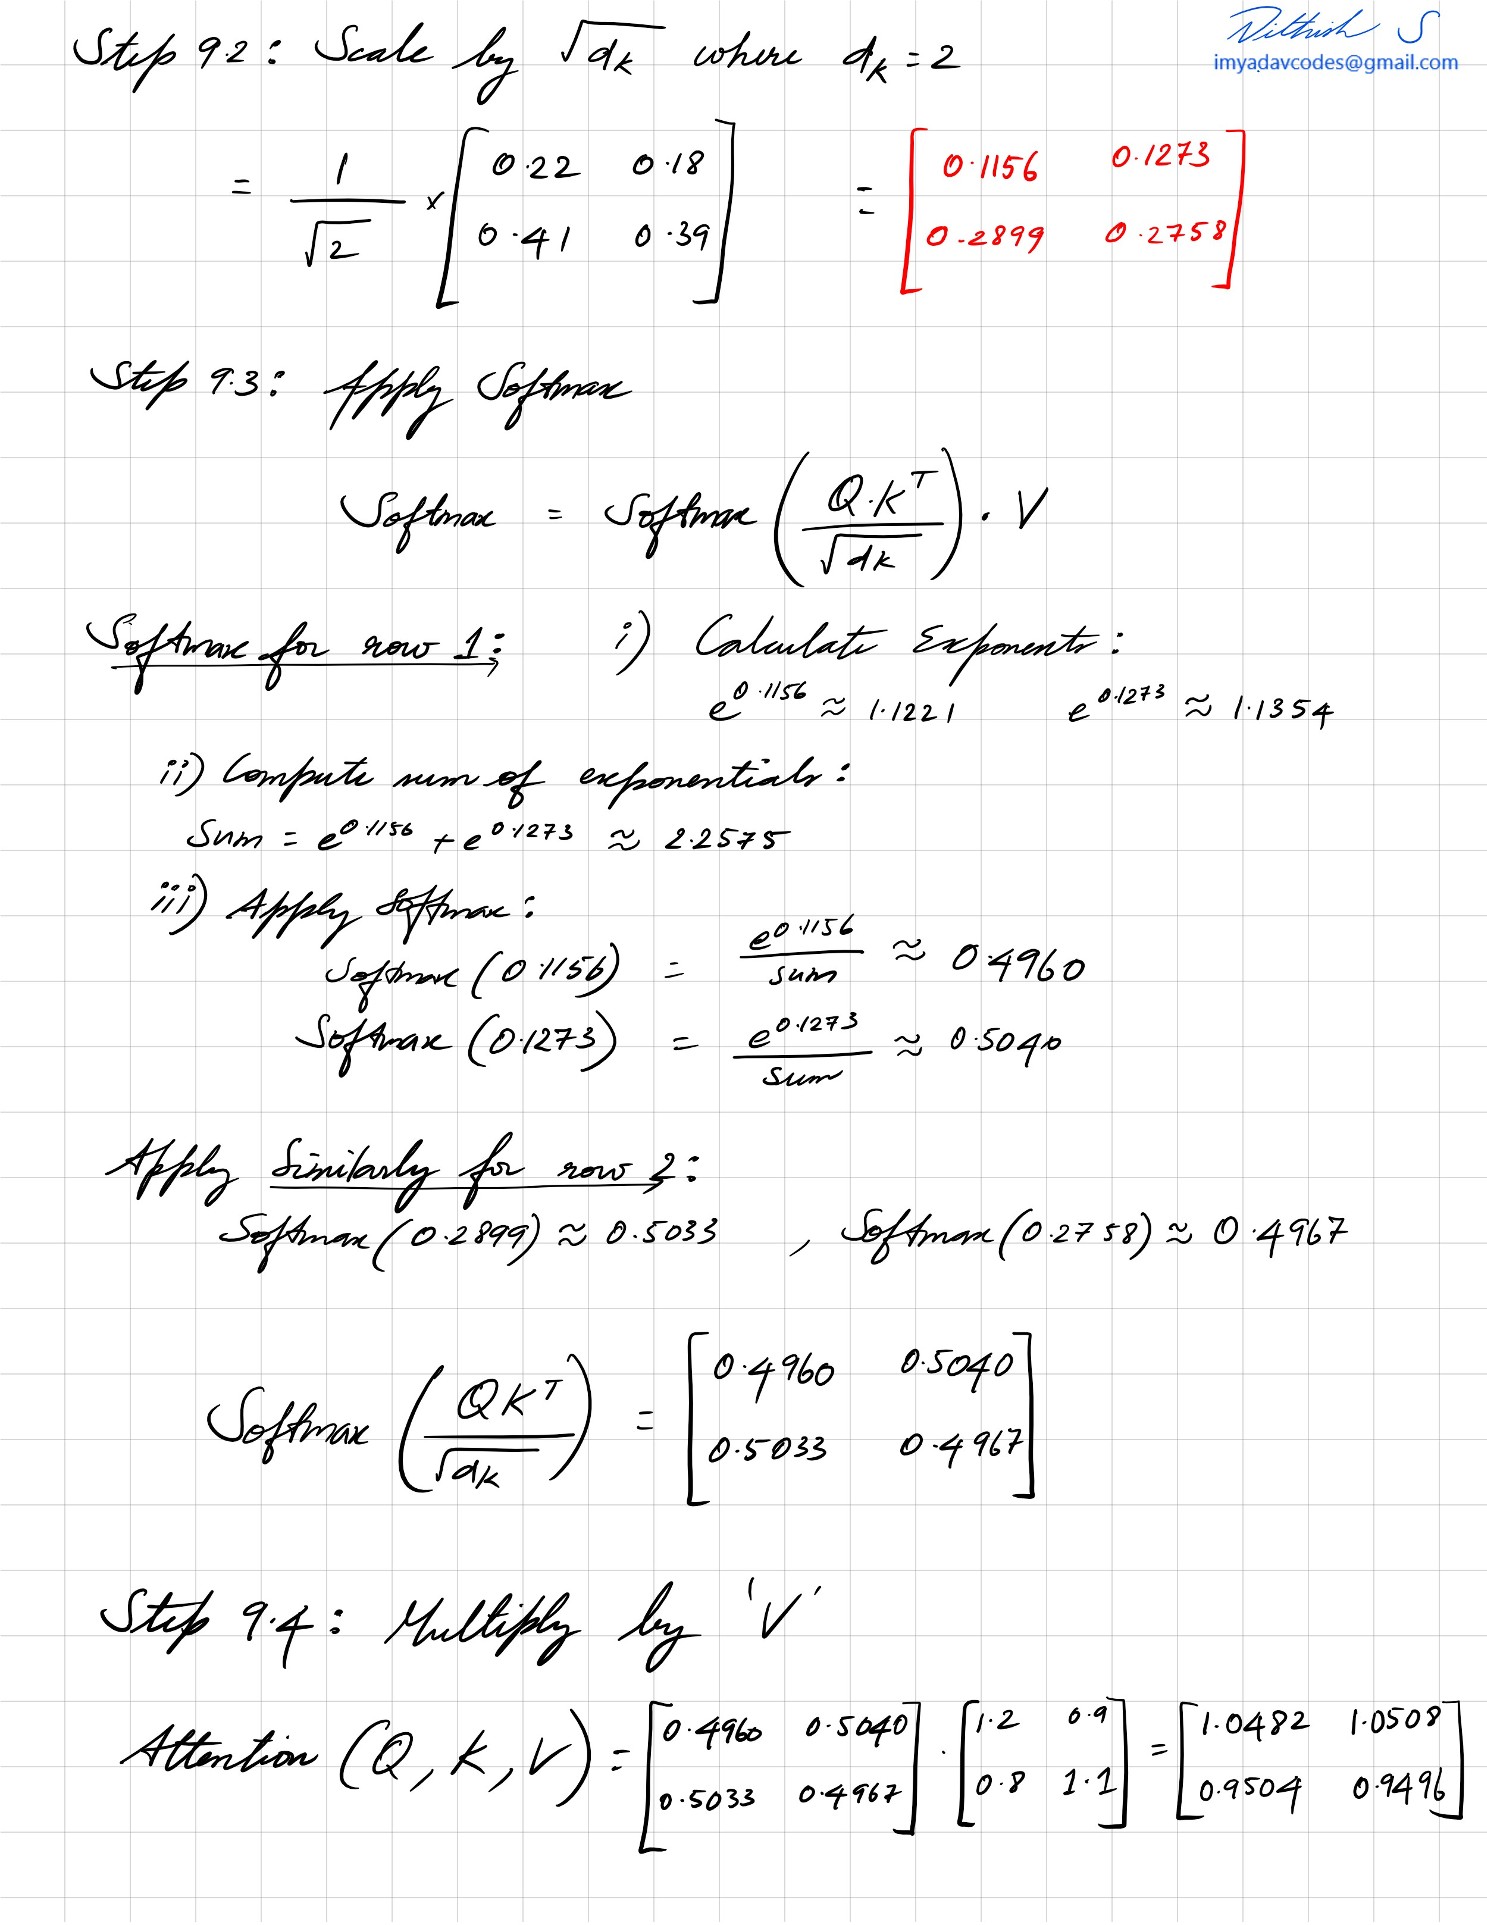 Nithish S
imyadavcodes@gmail.com
Step 9.2: Scale by √dk where dk = 2
= 1/√2 × [0.22 0.18
0.41 0.39] = [0.1156 0.1273
0.2899 0.2758]
Step 9.3: Apply Softmax
Softmax = Softmax (Q.K^T/√dk) . V
Softmax for row 1: i) Calculate Exponents:
e^0.1156 ≈ 1.1221 e^0.1273 ≈ 1.1354
ii) Compute sum of exponentials:
Sum = e^0.1156 + e^0.1273 ≈ 2.2575
iii) Apply Softmax:
Softmax (0.1156) = e^0.1156/sum ≈ 0.4960
Softmax (0.1273) = e^0.1273/sum ≈ 0.5040
Apply Similarly for row 2:
Softmax (0.2899) ≈ 0.5033 , Softmax (0.2758) ≈ 0.4967
Softmax (QK^T/√dk) = [0.4960 0.5040
0.5033 0.4967]
Step 9.4: Multiply by 'V'
Attention (Q, K, V) = [0.4960 0.5040 . [1.2 0.9 = [1.0482 1.0508
0.5033 0.4967] 0.8 1.1] 0.9504 0.9496]